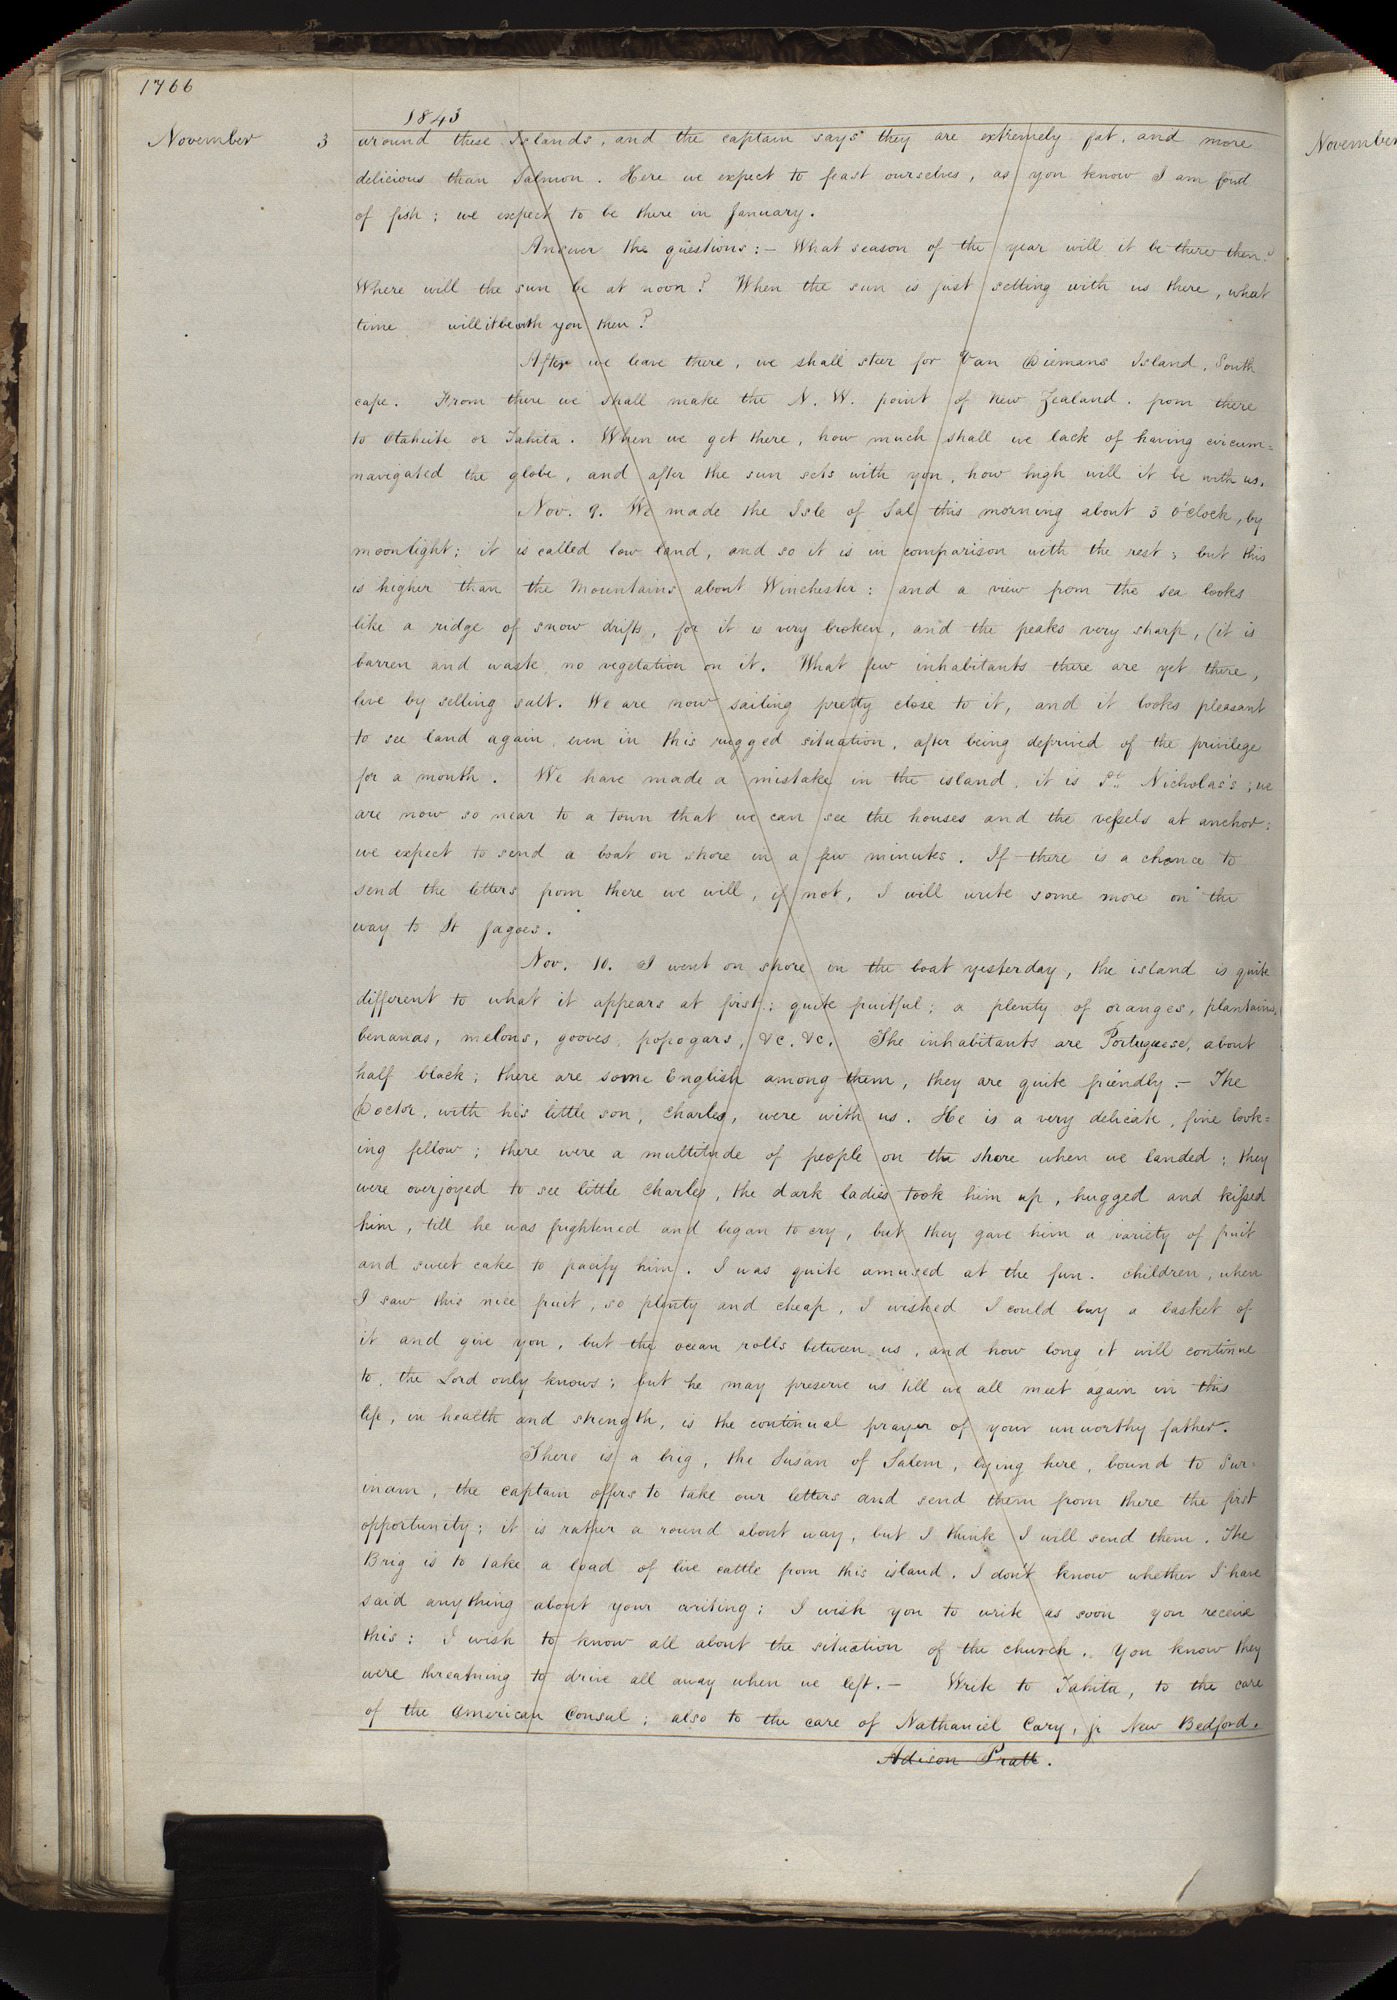 1766
1843
November 3 around these Islands, and the captain says they are extremely fat, and more
delicious than Salmon. Here we expect to feast ourselves, as you know I am fond
of fish; we expect to be there in January.
Answer the questions:— What season of the year will it be there then?
Where will the sun be at noon? When the sun is just setting with us there, what
time will it be with you then?
After we leave there, we shall steer for Van Diemans Island, South
cape. From there we shall make the N. W. point of New Zealand. from there
to Otaheite or Tahita. When we get there, how much shall we lack of having circum=
navigated the globe, and after the sun sets with you, how high will it be with us.
Nov. 9. We made the Isle of Sal this morning about 3 o'clock, by
moonlight; it is called low land, and so it is in comparison with the rest; but this
is higher than the Mountains about Winchester: and a view from the sea looks
like a ridge of snow drifts, for it is very broken, and the peaks very sharp, (it is
barren and waste, no vegetation on it. What few inhabitants there are yet there,
live by selling salt. We are now sailing pretty close to it, and it looks pleasant
to see land again, even in this rugged situation, after being deprived of the privilege
for a month. We have made a mistake in the island, it is St. Nicholas's; we
are now so near to a town that we can see the houses and the vessels at anchor:
we expect to send a boat on shore in a few minutes. If there is a chance to
send the letters from there we will, if not, I will write some more on the
way to St Jagoes.
Nov. 10. I went on shore in the boat yesterday, the island is quite
different to what it appears at first; quite fruitful; a plenty of oranges, plantains,
benanas, melons, gooves, popogars, &c. &c. The inhabitants are Portuguese, about
half black; there are some English among them, they are quite friendly.— The
Doctor, with his little son, Charles, were with us. He is a very delicate, fine look=
ing fellow; there were a multitude of people on the shore when we landed; they
were overjoyed to see little Charles, the dark ladies took him up, hugged and kissed
him, till he was frightened and began to cry, but they gave him a variety of fruit
and sweet cake to pacify him. I was quite amused at the fun. Children, when
I saw this nice fruit, so plenty and cheap, I wished I could buy a basket of
it and give you, but the ocean rolls between us, and how long it will continue
to, the Lord only knows; but he may preserve us till we all meet again in this
life, in health and strength, is the continual prayer of your unworthy father.
There is a brig, the Susan of Salem, lying here, bound to Sur=
inam, the captain offers to take our letters and send them from there the first
opportunity; it is rather a round about way, but I think I will send them. The
Brig is to take a load of live cattle from this island. I don't know whether I have
said anything about your writing; I wish you to write as soon you receive
this: I wish to know all about the situation of the church. You know they
were threatning to drive all away when we left.— Write to Tahita, to the care
of the American Consul; also to the care of Nathaniel Cary, jr New Bedford.
Adison Pratt.
November